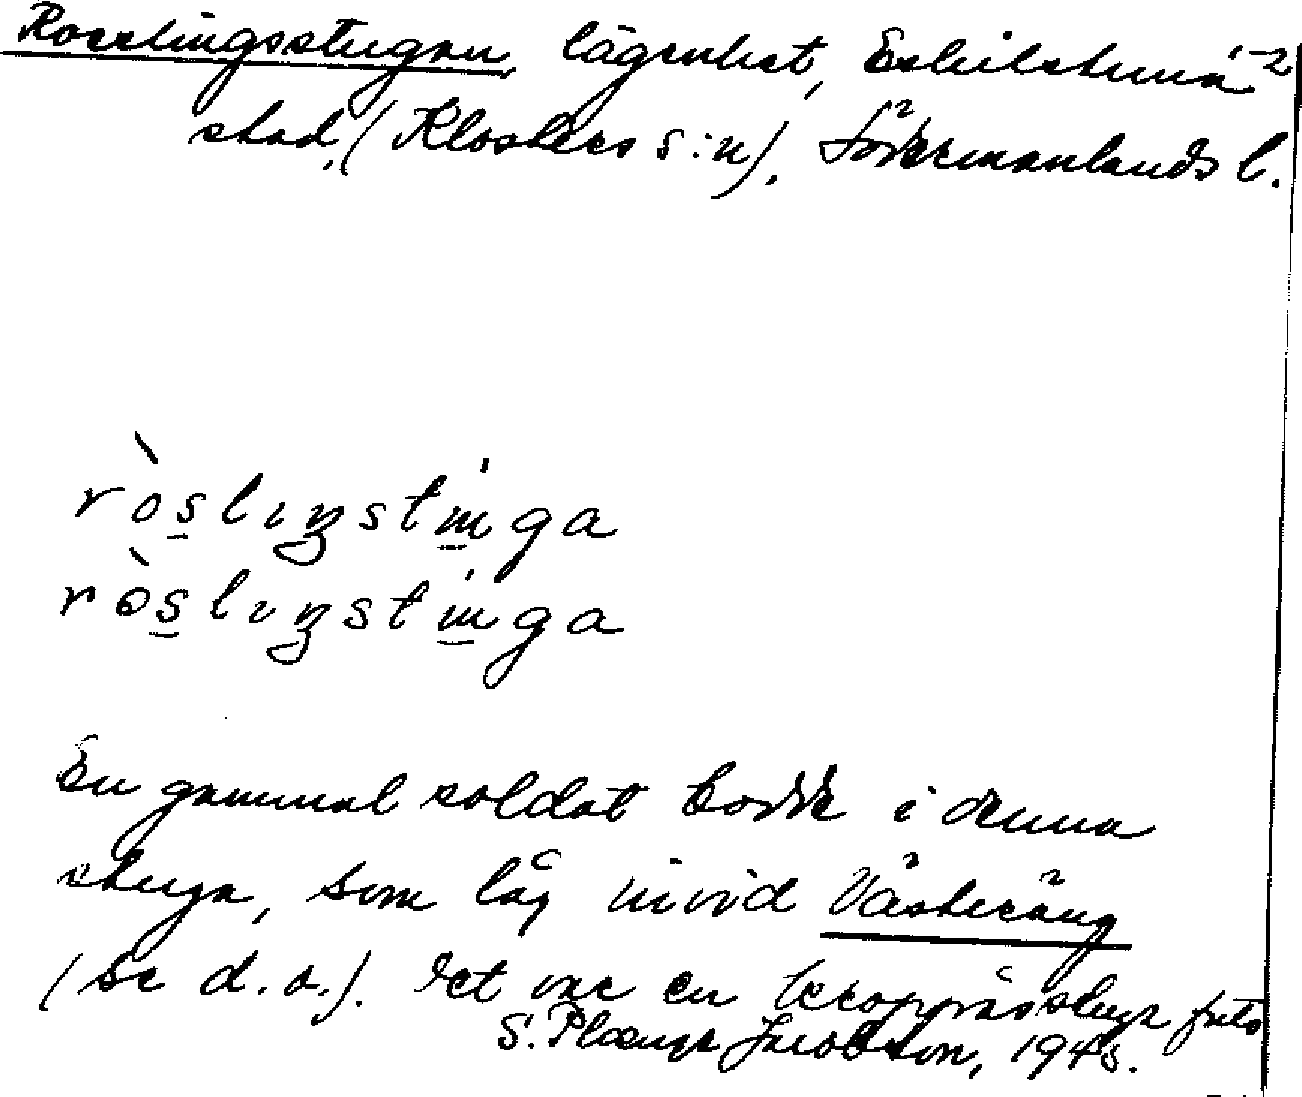 Roslingsstugan, lägenhet, Eskilstuna
stad, (Klosters s:n), Södermanlands l.
ròslıŋstuga
ròslıŋstuga
En gammal soldat bodde i denna
stuga, som låg invid Västeräng
(se d.o.). Det var en kroppåsstuga
S. Jacobson, 1945.